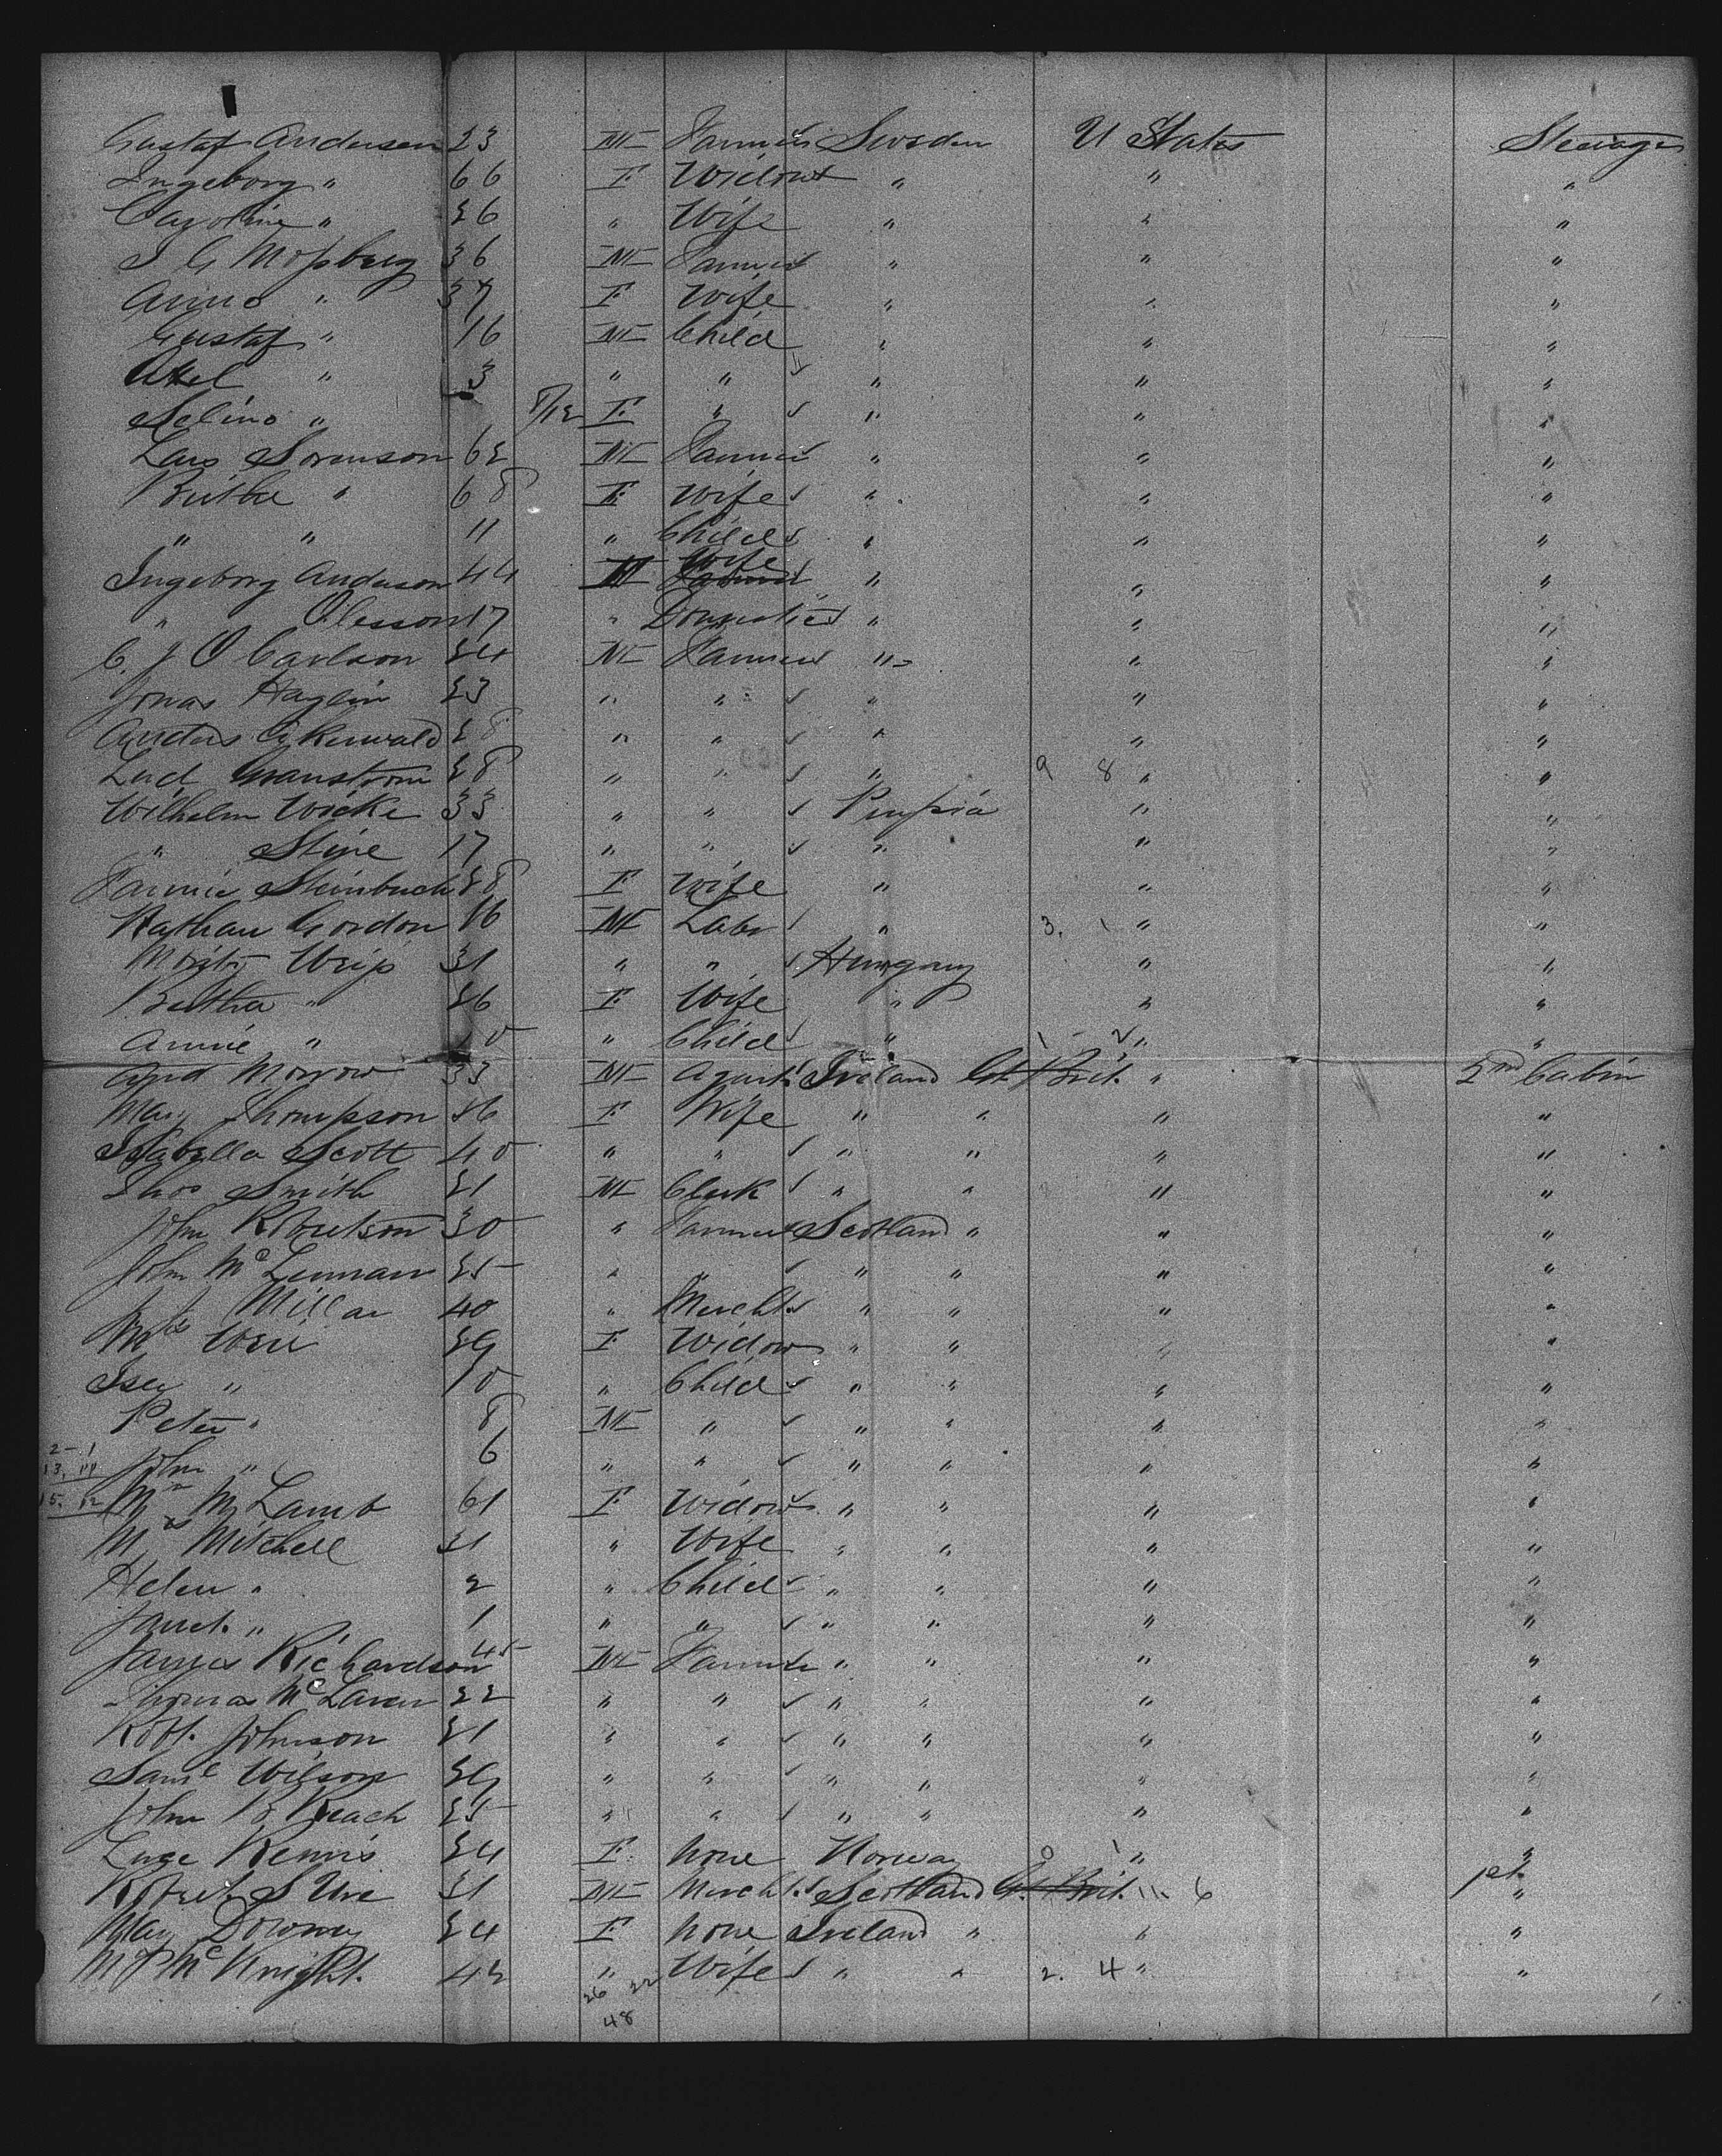 Gustaf Andersen 23 M Farmer Sweden U States Steerage
Ingeborg " 66 F Widow " " "
Caroline " 26 " Wife " " "
J G Mossberg 36 M Farmer " " "
Anna " 37 F Wife " " "
Gustaf " 16 M Child " " "
Axel " 3 " " " " "
Selina " 8/12 F " " " "
Lars Sorenson 62 M Farmer " " "
" 68 F Wife " " "
" " 11 " Child " " "
Ingeborg Anderson 44 Wife " " "
" Olesson 17 " Domestic " " "
C. J O Carlson 24 M Farmer " " "
Jonas Haglin 23 " " " " "
Anders 28 " " " " "
Lud Granstrom 28 " " " 9 8 " "
Wilhelm Wicke 33 " " Prussia " "
" Stine 17 " " " " "
Fannie Steinbuch 28 F Wife " " "
Nathan Gordon 16 M Labr " 3. 1 " "
Moritz Weiss 31 " " Hungary " "
Bertha " 26 F Wife " " "
Annie " 10 " Child " 1 - 2 " "
Morrow 33 M Agent Ireland Gt Brit. " 2nd Cabin
May Thompson 36 F Wife " " " "
Isabella Scott 40 " " " " " "
Thos Smith 21 M Clerk " " " "
John Robertson 30 " Farmer Scotland " " "
John McLennan 25 " " " " " "
Millar 40 " Mercht " " " "
Mrs Weir 29 F Widow " " " "
" 10 " Child " " " "
Peter " 8 M " " " " "
2 - 1
13. 11 John " 6 " " " " " "
15. 12 Mrs M Lamb 61 F Widow " " " "
Mrs Mitchell 31 " Wife " " " "
Helen " 2 " Child " " " "
Janet " 1 " " " " " "
James Richardson 45 M Farmer " " " "
Thomas McLaren 22 " " " " " "
Robt. Johnson 21 " " " " " "
Saml Wilson 29 " " " " " "
John 25 " " " " " "
24 F None Norway 0 1 " "
Robert S Ure 31 M Mercht Scotland Gt Brit. " 6 1st "
May Downey 24 F None Ireland " " "
M P McKnight. 42 " Wife " " 2. 4 " "
26 22
48